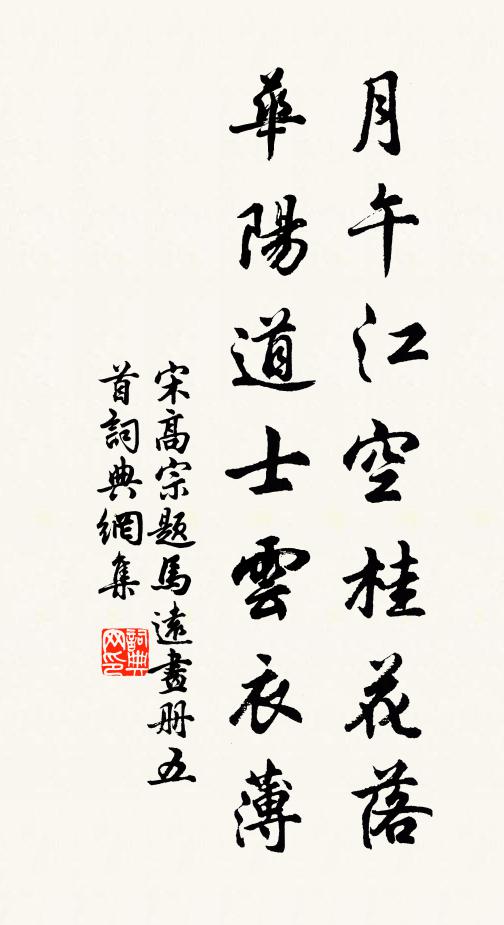 月午江空桂花落
華陽道士雲衣薄
宋高宗題馬遠畫册五
首詞典網集
詞典网印